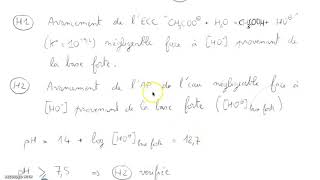 H1 Avancement de l'ECC "CH₃COO⁻ + H₂O = CH₃COOH + HO⁻"
négligeable face à [HO⁻] provenant de
la base forte.
H2 Avancement de l'AP de l'eau négligeable face à
[HO⁻] provenant de la base forte ([HO⁻] base forte)
pH = 14 + log [HO⁻] base forte = 12,7
pH ≥ 7,5 ⇒ H2 vérifiée